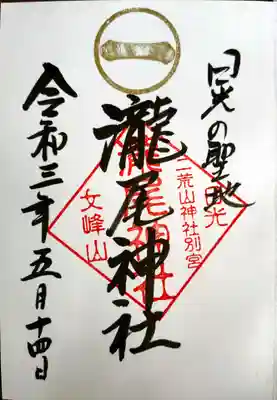 一
日光の聖地
瀧尾神社
令和三年五月十四日
日光
二荒山神社別宮
瀧尾神社
女峰山